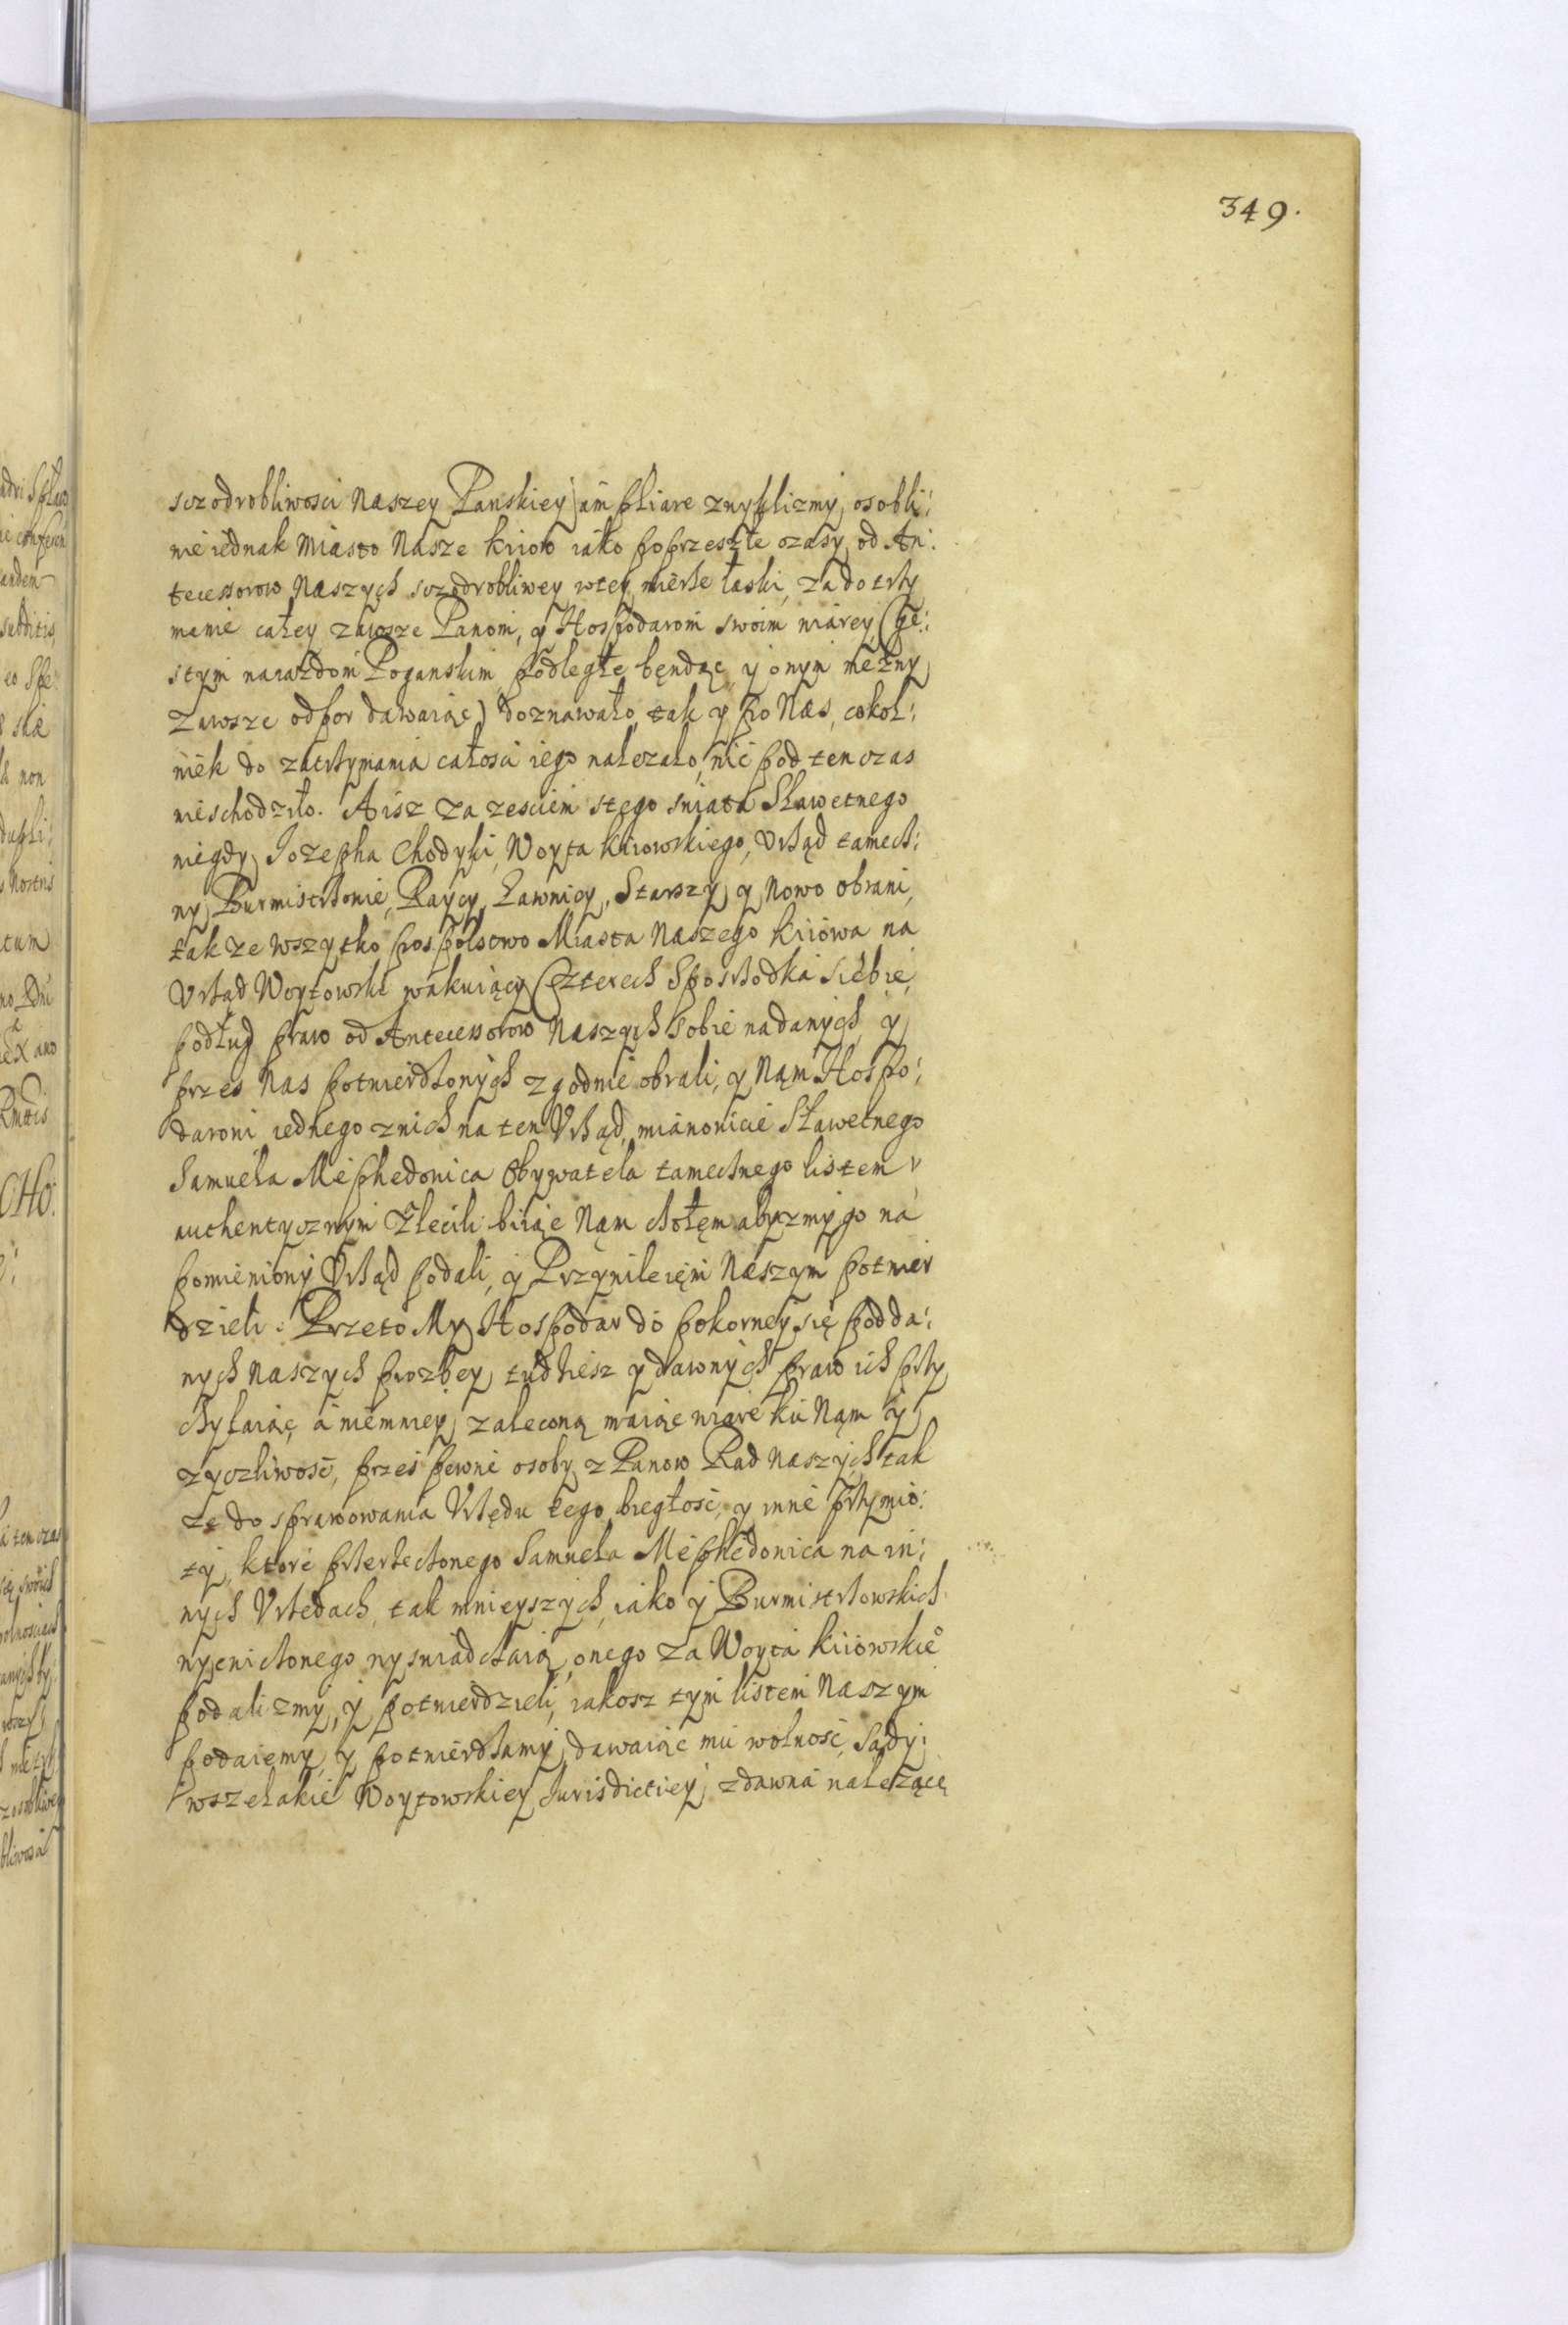 349.
szczodrobliwosci Naszey Panskiey ampliare zwyklizmy, osobli:
wie iednak Miasto Nasze Kiiow iako poprzeszłe czasy, od An:
tecessorow Naszych szczodrobliwey wtey mierze łaski, za dotrzy
manie całey zawsze Panom, y Hospodarom swoim wiarey (Czę:
stym naiazdom Poganskim podległe będąc y onym mężny
zawsze odpor dawaiąc) doznawało, tak y po Nas, cokol:
wiek do zatrzymania całosci iego nalezało, nic pod ten czas
nieschodziło. A isz za zesciem stego swiata Sławetnego
niegdy Jozepha Chodyki, Woyta Kiiowskiego, Vrząd tamecz:
ny, Burmistrzowie, Raycy, Ławnicy, Starszy y Nowo obrani,
także wszytko pospolstwo Miasta Naszego Kiiowa na
Vrząd Woytowski wakuiący Czterech Sposrzodka siebie,
podług praw od Antecessorow Naszych sobie nadanych, y
przes Nas potwierdzonych zgodnie obrali, y Nąm Hospo:
darowi iednego znich na ten Vrząd, mianowicie Sławetnego
Samuela Mephedowica Obywatela tamecznego listem
authentycznym zlecili biiąc Nąm czołęm abyzmy go na
pomieniony Vrząd podali, y Przywileięm Naszym potwier
dzieli. Przeto My Hospodar do pokorney się podda:
nych Naszych prozbey, tudziesz y dawnych praw ich przy
chylaiąc, a niemniey zaleconą maiąc wiare ku Nąm y
zyczliwosc, przes pewne osoby z Panow Rad Naszych tak
ze do sprawowania Vrzędu tego biegłosc, y inne przymio:
ty, ktore przerzeczonego Samuela Mephedowica na in:
nych Vrzedach, tak mnieyszych, iako y Burmistrzowskich
wycwiczonego wyswiadczaią, onego za Woyta Kiiowskieo
podalizmy, y potwierdzieli, iakosz tym listem Naszym
podaiemy, y potwierdzamy, dawaiąc mu wolnosc, Sądy
wszelakie Woytowskiey Jurisdictiey zdawna nalezące